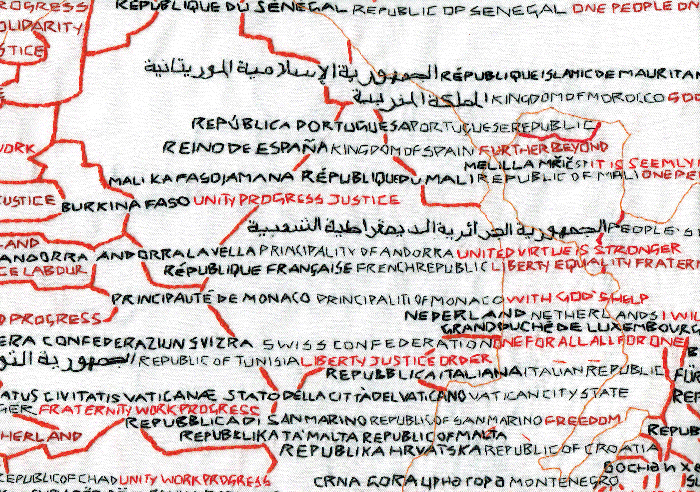 ROGRESS
REPUBLIQUE DU SÉNÉGAL REPUBLIC OF SENEGAL ONE PEOPLE ON
OLIDARITY
STICE
الجمهورية الإسلامية الموريتانية RÉPUBLIQUE ISLAMIC DE MAURITAN
المملكة المغربية KINGDOM OF MOROCCO GOD
REPÚBLICA PORTUGUESA PORTUGUESE REPUBLIC
WORK REINO DE ESPAÑA KINGDOM OF SPAIN FURTHER BEYOND
MELILLA IT IS SEEMLY
MALI KA FASOJAMANA RÉPUBLIQUE DU MALI REPUBLIC OF MALI ONE PE
JUSTICE BURKINA FASO UNITY PROGRESS JUSTICE
الجمهورية الجزائرية الديمقراطية الشعبية PEOPLE'S
LAND
ANDORRA ANDORRA LA VELLA PRINCIPALITY OF ANDORRA UNITED VIRTUE IS STRONGER
CE LABOUR RÉPUBLIQUE FRANÇAISE FRENCH REPUBLIC LIBERTY EQUALITY FRATER
PRINCIPAUTÉ DE MONACO PRINCIPALITI OF MONACO WITH GOD'S HELP
NEDERLAND NETHERLANDS I WIL
D PROGRESS GRAND DUCHÉ DE LUXEMBOURG
ERA CONFEDERAZIUN SVIZRA SWISS CONFEDERATION ONE FOR ALL ALL FOR ONE
الجمهورية التو REPUBLIC OF TUNISIA LIBERTY JUSTICE ORDER
REPUBBLICA ITALIANA ITALIAN REPUBLIC FÜR
ATUS CIVITATIS VATICANÆ STATO DELLA CITTÀ DEL VATICANO VATICAN CITY STATE REP
GER FRATERNITY WORK PROGRESS
REPUBBLICA DI SAN MARINO REPUBLIC OF SAN MARINO FREEDOM REPUB
HERLAND REPUBBLIKA TA' MALTA REPUBLIC OF MALTA
REPUBLIKA HRVATSKA REPUBLIC OF CROATIA
БОСНА И ХЕ
REPUBLIC OF CHAD UNITY WORK PROGRESS CRNA GORA Црна гора MONTENEGRO